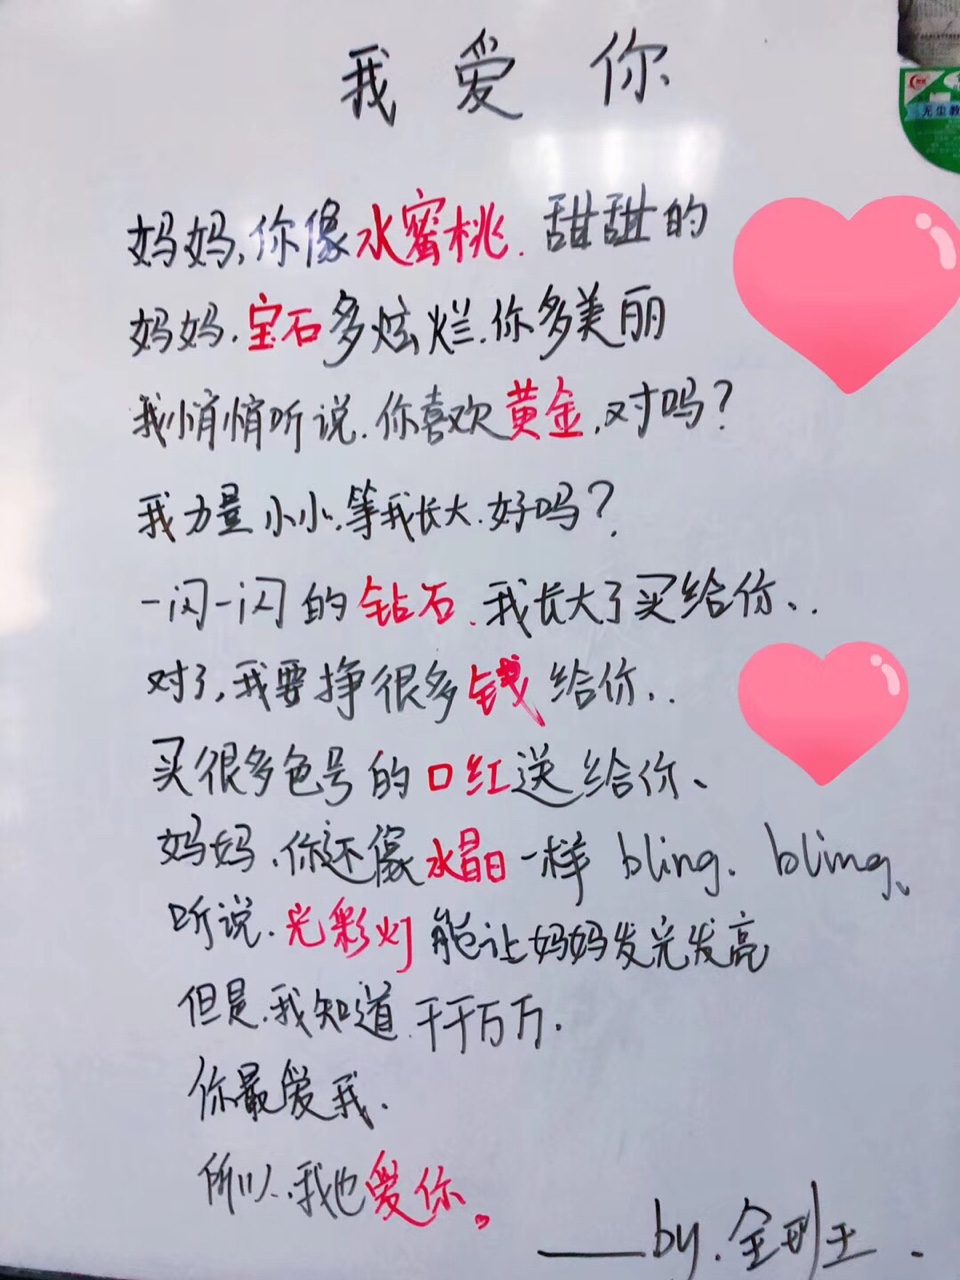 我爱你
无尘教
妈妈,你像水蜜桃.甜甜的
妈妈.宝石多炫烂.你多美丽
我悄悄听说.你喜欢黄金.对吗?
我力量小小.等我长大.好吗?
一闪一闪的钻石.我长大了买给你..
对了,我要挣很多钱给你..
买很多色号的口红送给你、
妈妈.你还像水晶一样 bling. bling、
听说.光彩灯能让妈妈发光发亮
但是.我知道.千千万万.
你最爱我.
所以.我也爱你。
——by.